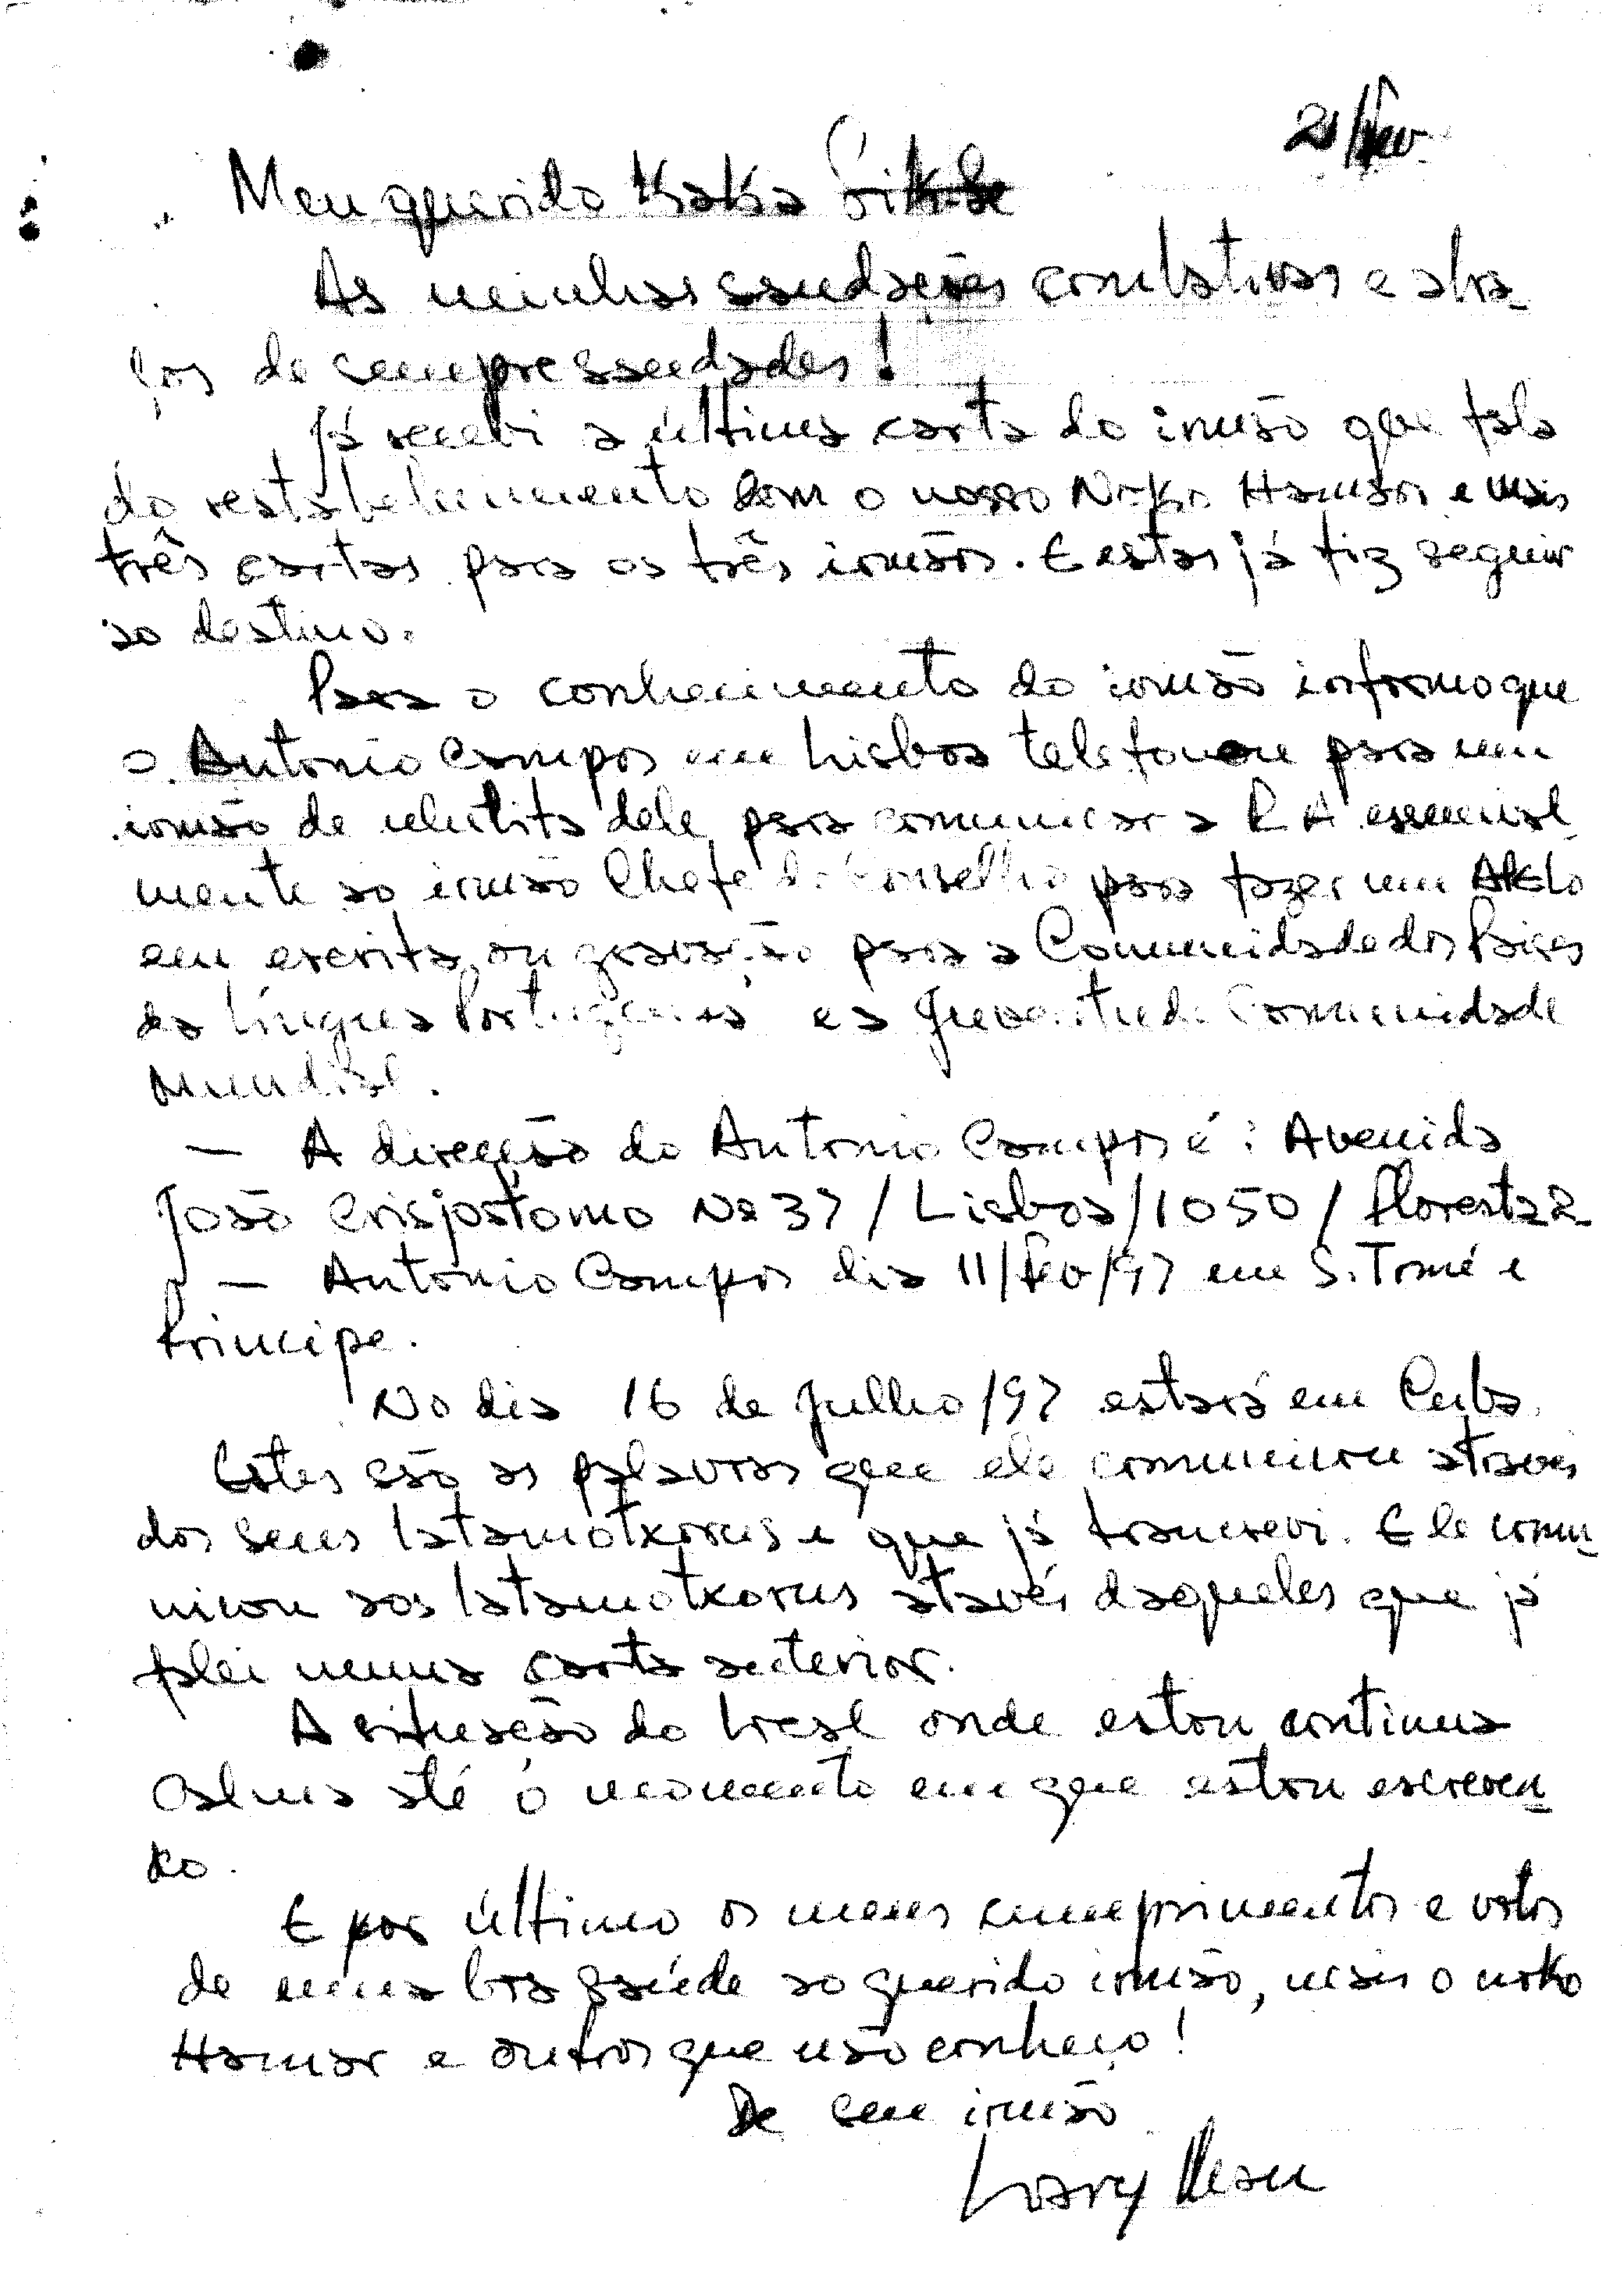 21/Fev.
Meu querido Kaka
As minhas saudações combativas e abra-
ços de sempre saudades!
Já recebi a última carta do irmão que fala
do restabelecimento com o nosso Hamar e mais
três cartas para os três irmãos. E estas já fiz seguir
ao destino.
Para o conhecimento do irmão informo que
o Antonio Campos em Lisboa telefonou para um
irmão de dele para comunicar a R A
mente ao irmão Chefe do Conselho para fazer um
em escrita ou gravação para a Comunidade dos Paises
da língua Portuguesa e a Juventude Comunidade
Mundial.
— A direcção do Antonio Campos é: Avenida
João Crisjostomo Nº 37 / Lisboa / 1050 / Floresta 2
— Antonio Campos dia 11/Fev/97 em S. Tomé e
Principe.
No dia 16 de Julho/97 estará em Cuba.
Estes são as palavras que ele comunicou através
dos seus e que já trancrevi. Ele comu-
nicou aos através daqueles que já
falei numa carta anterior.
A situação do local onde estou continua
calma até o momento em que estou escreven-
do.
E por último os meus cumprimentos e votos
de uma boa saúde ao querido irmão, mais o noko
Hamar e outros que não conheço!
De seu irmão